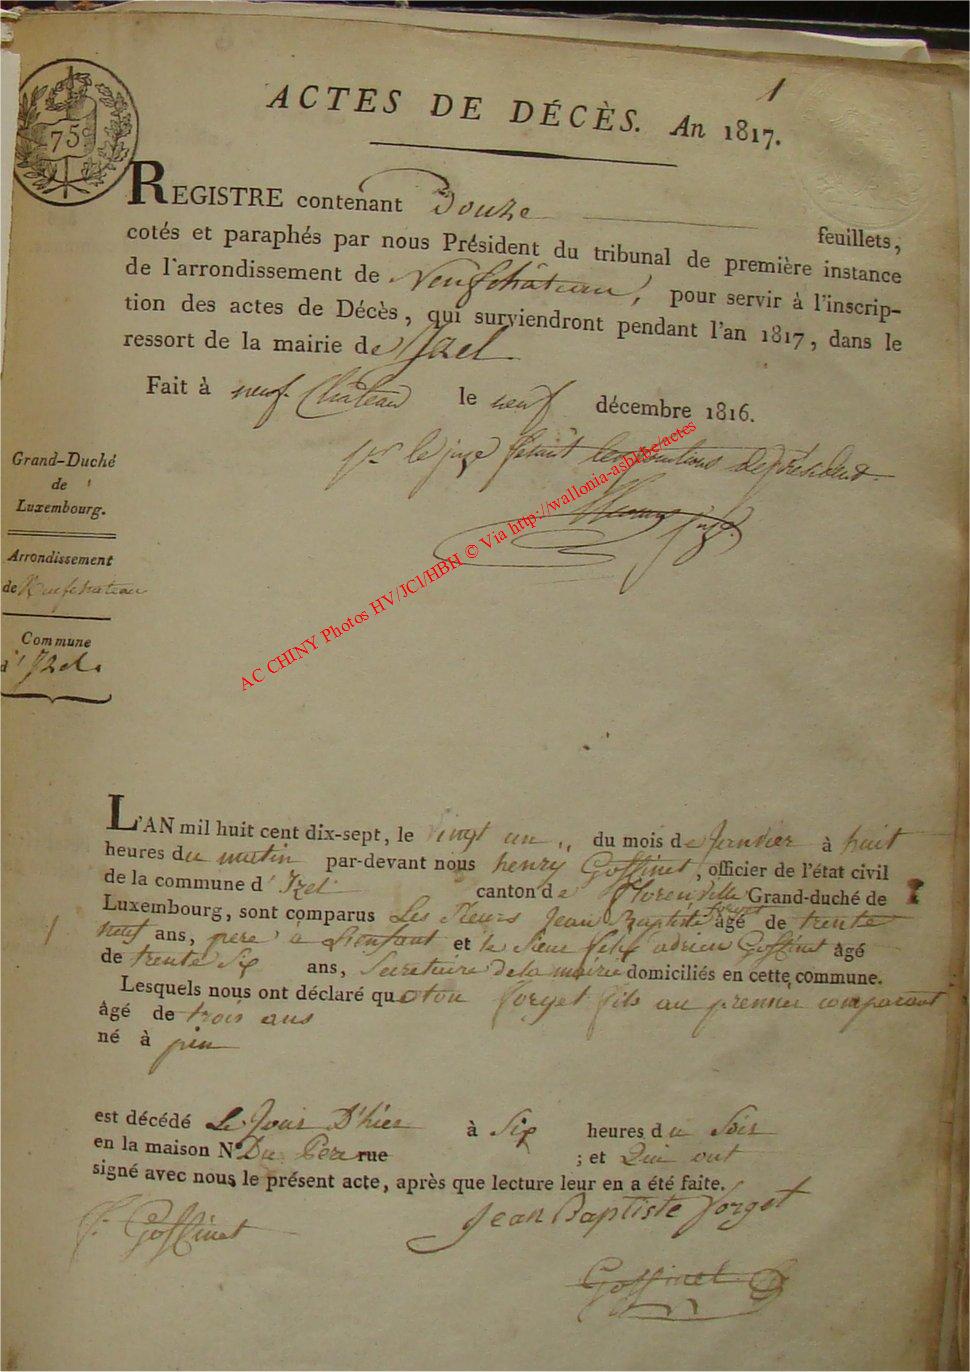 1
75c
ACTES DE DÉCÈS. An 1817.
REGISTRE contenant Douze feuillets,
cotés et paraphés par nous Président du tribunal de première instance
de l'arrondissement de Neufchâteau, pour servir à l'inscrip-
tion des actes de Décès, qui surviendront pendant l'an 1817, dans le
ressort de la mairie de Izel
Fait à neuf-Château le neuf décembre 1816.
pr le juge faisant les fonctions de président
juge
AC CHINY Photos HV/JCl/HBH © Via http://wallonia-asbl.be/actes
Grand-Duché
de
Luxembourg.
Arrondissement
de Neufchateau
Commune
d' Izel.
L'AN mil huit cent dix-sept, le vingt un du mois de Janvier à huit
heures du matin par-devant nous henry Goffinet, officier de l'état civil
de la commune d' Izel canton de florenville Grand-duché de
Luxembourg, sont comparus Les Sieurs Jean Baptiste forget âgé de trente
neuf ans, père à L'enfant et le Sieur felix adrien Goffinet âgé
de trente Six ans, Secretaire de la mairie domiciliés en cette commune.
Lesquels nous ont déclaré que forget fils au premier comparant
âgé de trois ans
né à pin
est décédé Le Jour D'hier à Six heures du Soir
en la maison No. Du Pere rue ; et Qui ont
signé avec nous le présent acte, après que lecture leur en a été faite.
f. Goffinet Jean Baptiste forget
Goffinet